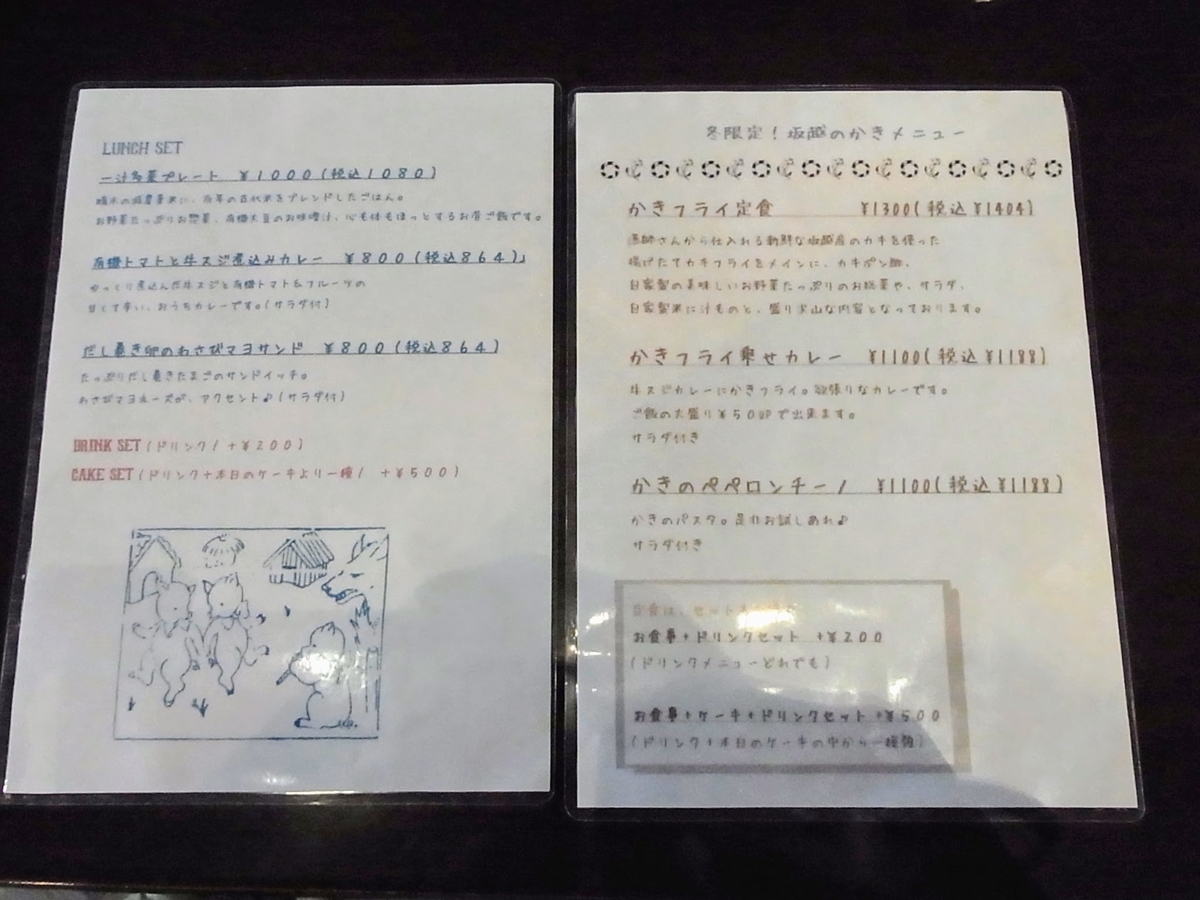 LUNCH SET
一汁多菜プレート ¥1000(税込1080)
をブレンドしたごはん。
お野菜たっぷりお惣菜、有機大豆のお味噌汁、心も体もほっとするお昼ご飯です。
有機トマトと牛スジ煮込みカレー ¥800(税込864)
ゆっくり煮込んだ牛スジと有機トマト&フルーツの
甘くて辛い、おうちカレーです。(サラダ付)
だし巻き卵のわさびマヨサンド ¥800(税込864)
たっぷりだし巻きたまごのサンドイッチ。
わさびマヨネーズが、アクセント♪(サラダ付)
DRINK SET(ドリンク/ +¥200)
CAKE SET(ドリンク+本日のケーキより一種/ +¥500)
冬限定!坂越のかきメニュー
かきフライ定食 ¥1300(税込¥1404)
漁師さんから仕入れる新鮮な坂越産のカキを使った
揚げたてカキフライをメインに、カキポン酢、
自家製の美味しいお野菜たっぷりのお惣菜や、サラダ、
自家製米に汁ものと、盛り沢山な内容となっております。
かきフライ乗せカレー ¥1100(税込¥1188)
牛スジカレーにかきフライ。欲張りなカレーです。
ご飯の大盛り¥50UPで出来ます。
サラダ付き
かきのペペロンチーノ ¥1100(税込¥1188)
かきのパスタ。是非お試しあれ♪
サラダ付き
お食事+ドリンクセット +¥200
(ドリンクメニューどれでも)
お食事+ケーキ+ドリンクセット +¥500
(ドリンク+本日のケーキの中から一種類)